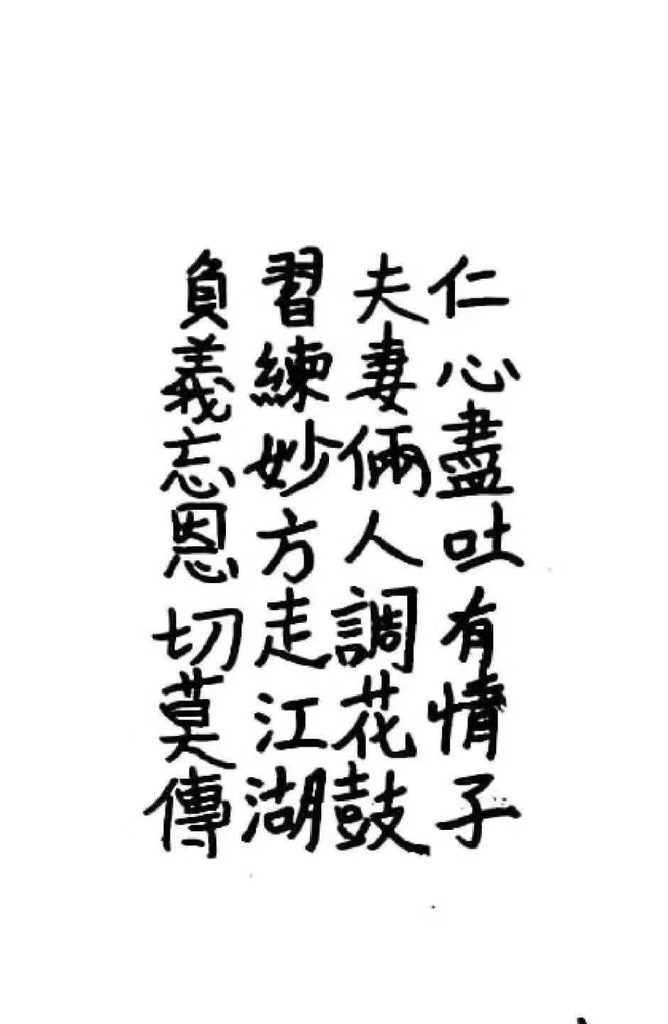 仁心盡吐有情子
夫妻倆人調花鼓
習練妙方走江湖
負義忘恩切莫傳